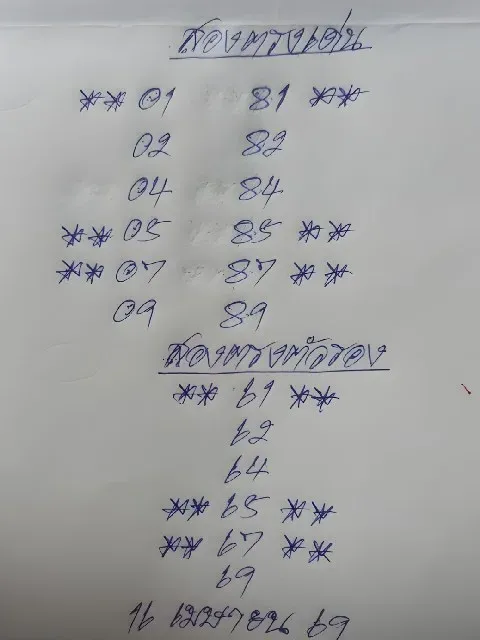 สองตรงเด่น
** 01 81 **
02 82
04 84
** 05 85 **
** 07 87 **
09 89
สองตรงตัวรอง
** 61 **
62
64
** 65 **
** 67 **
69
16 เมษายน 69